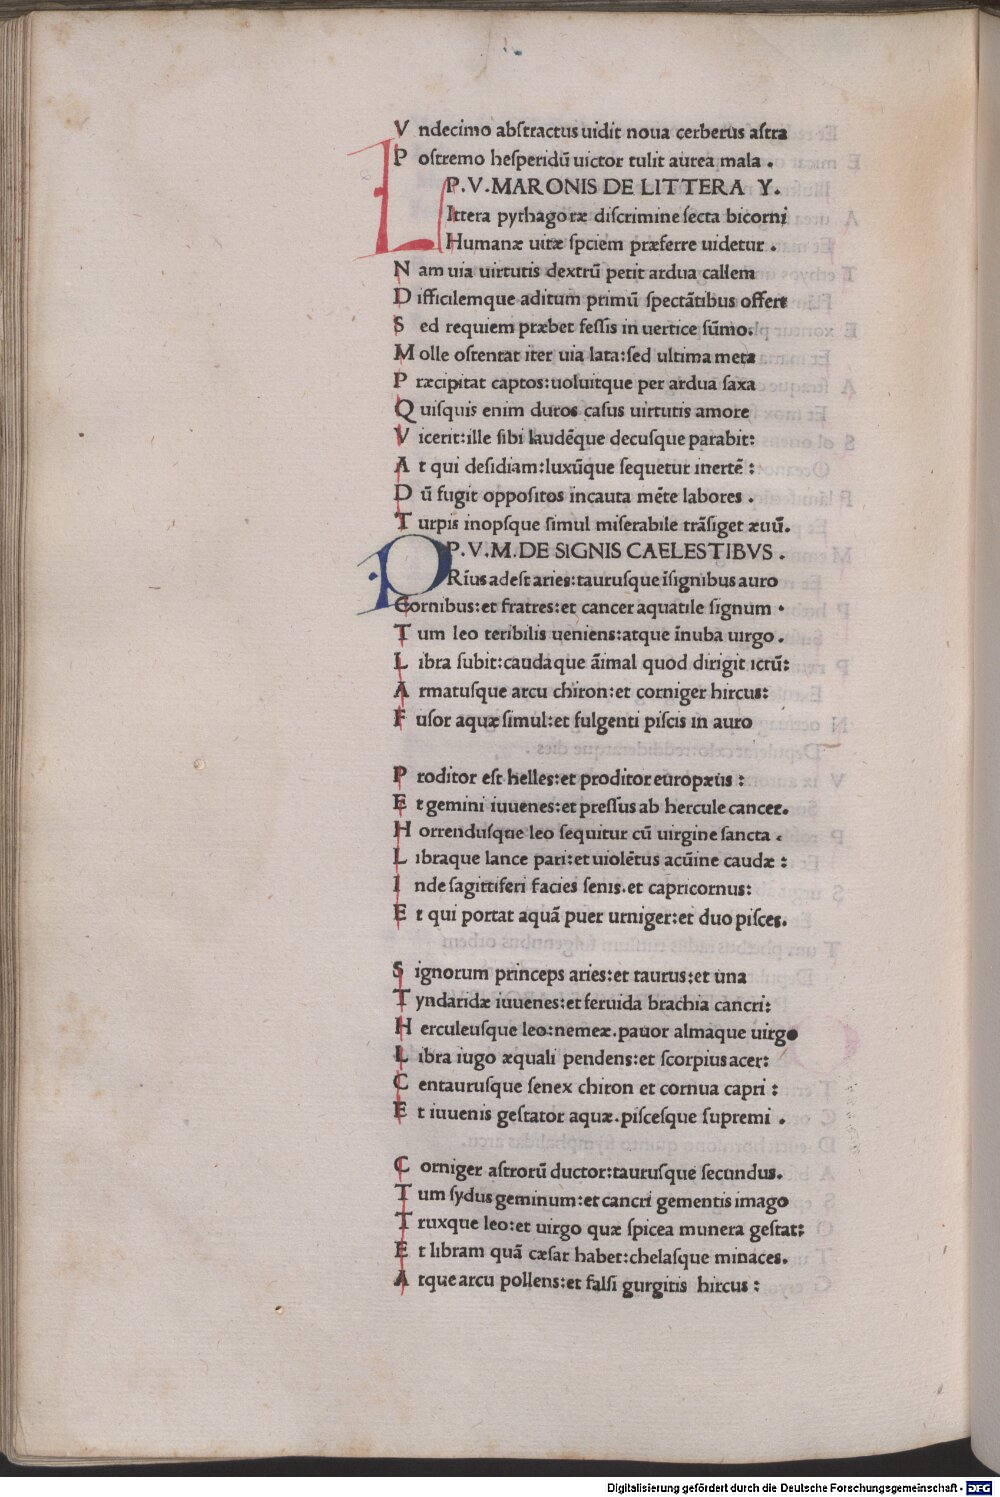 Vndecimo abſtractus uidit noua cerberus aſtra
Poſtremo heſperidū uictor tulit aurea mala .
P.V.MARONIS DE LITTERA Y.
LIttera pythagoræ diſcrimine ſecta bicorni
Humanæ uitæ ſpciem præferre uidetur .
Nam uia uirtutis dextrū petit ardua callem
Difficilemque aditum primū ſpectātibus offert
Sed requiem præbet feſſis in uertice ſūmo.
Molle oſtentat iter uia lata:ſed ultima meta
Præcipitat captos:uoluitque per ardua ſaxa
Quiſquis enim duros caſus uirtutis amore
Vicerit:ille ſibi laudēque decuſque parabit:
At qui deſidiam:luxūque ſequetur inertē :
Dū fugit oppoſitos incauta mēte labores .
Turpis inopſque ſimul miſerabile trāſiget æuū.
P.V.M.DE SIGNIS CAELESTIBVS .
PRīus adest aries:tauruſque īſignibus auro
Cornibus:et fratres:et cancer aquatile ſignum .
Tum leo teribilis ueniens:atque īnuba uirgo .
Libra ſubit:caudaque āimal quod dirigit ictū:
Armatuſque arcu chiron:et corniger hircus:
Fuſor aquæ ſimul:et fulgenti piſcis in auro
Proditor eſt helles:et proditor europæus :
Et gemini iuuenes:et preſſus ab hercule cancer.
Horrenduſque leo ſequitur cū uirgine ſancta .
Libraque lance pari:et uiolētus acūine caudæ :
Inde ſagittiferi facies ſenis.et capricornus:
Et qui portat aquā puer urniger:et duo piſces.
Signorum princeps aries:et taurus:et una
Tyndaridæ iuuenes:et feruida brachia cancri:
Herculeuſque leo:nemeæ.pauor almaque uirgo
Libra iugo æquali pendens:et ſcorpius acer:
Centauruſque ſenex chiron et cornua capri :
Et iuuenis geſtator aquæ.piſceſque ſupremi .
Corniger aſtrorū ductor:tauruſque ſecundus.
Tum ſydus geminum:et cancri gementis imago
Truxque leo:et uirgo quæ ſpicea munera geſtat:
Et libram quā cæſar habet:chelaſque minaces.
Atque arcu pollens:et falſi gurgitis hircus :
Digitalisierung gefördert durch die Deutsche Forschungsgemeinschaft - DFG